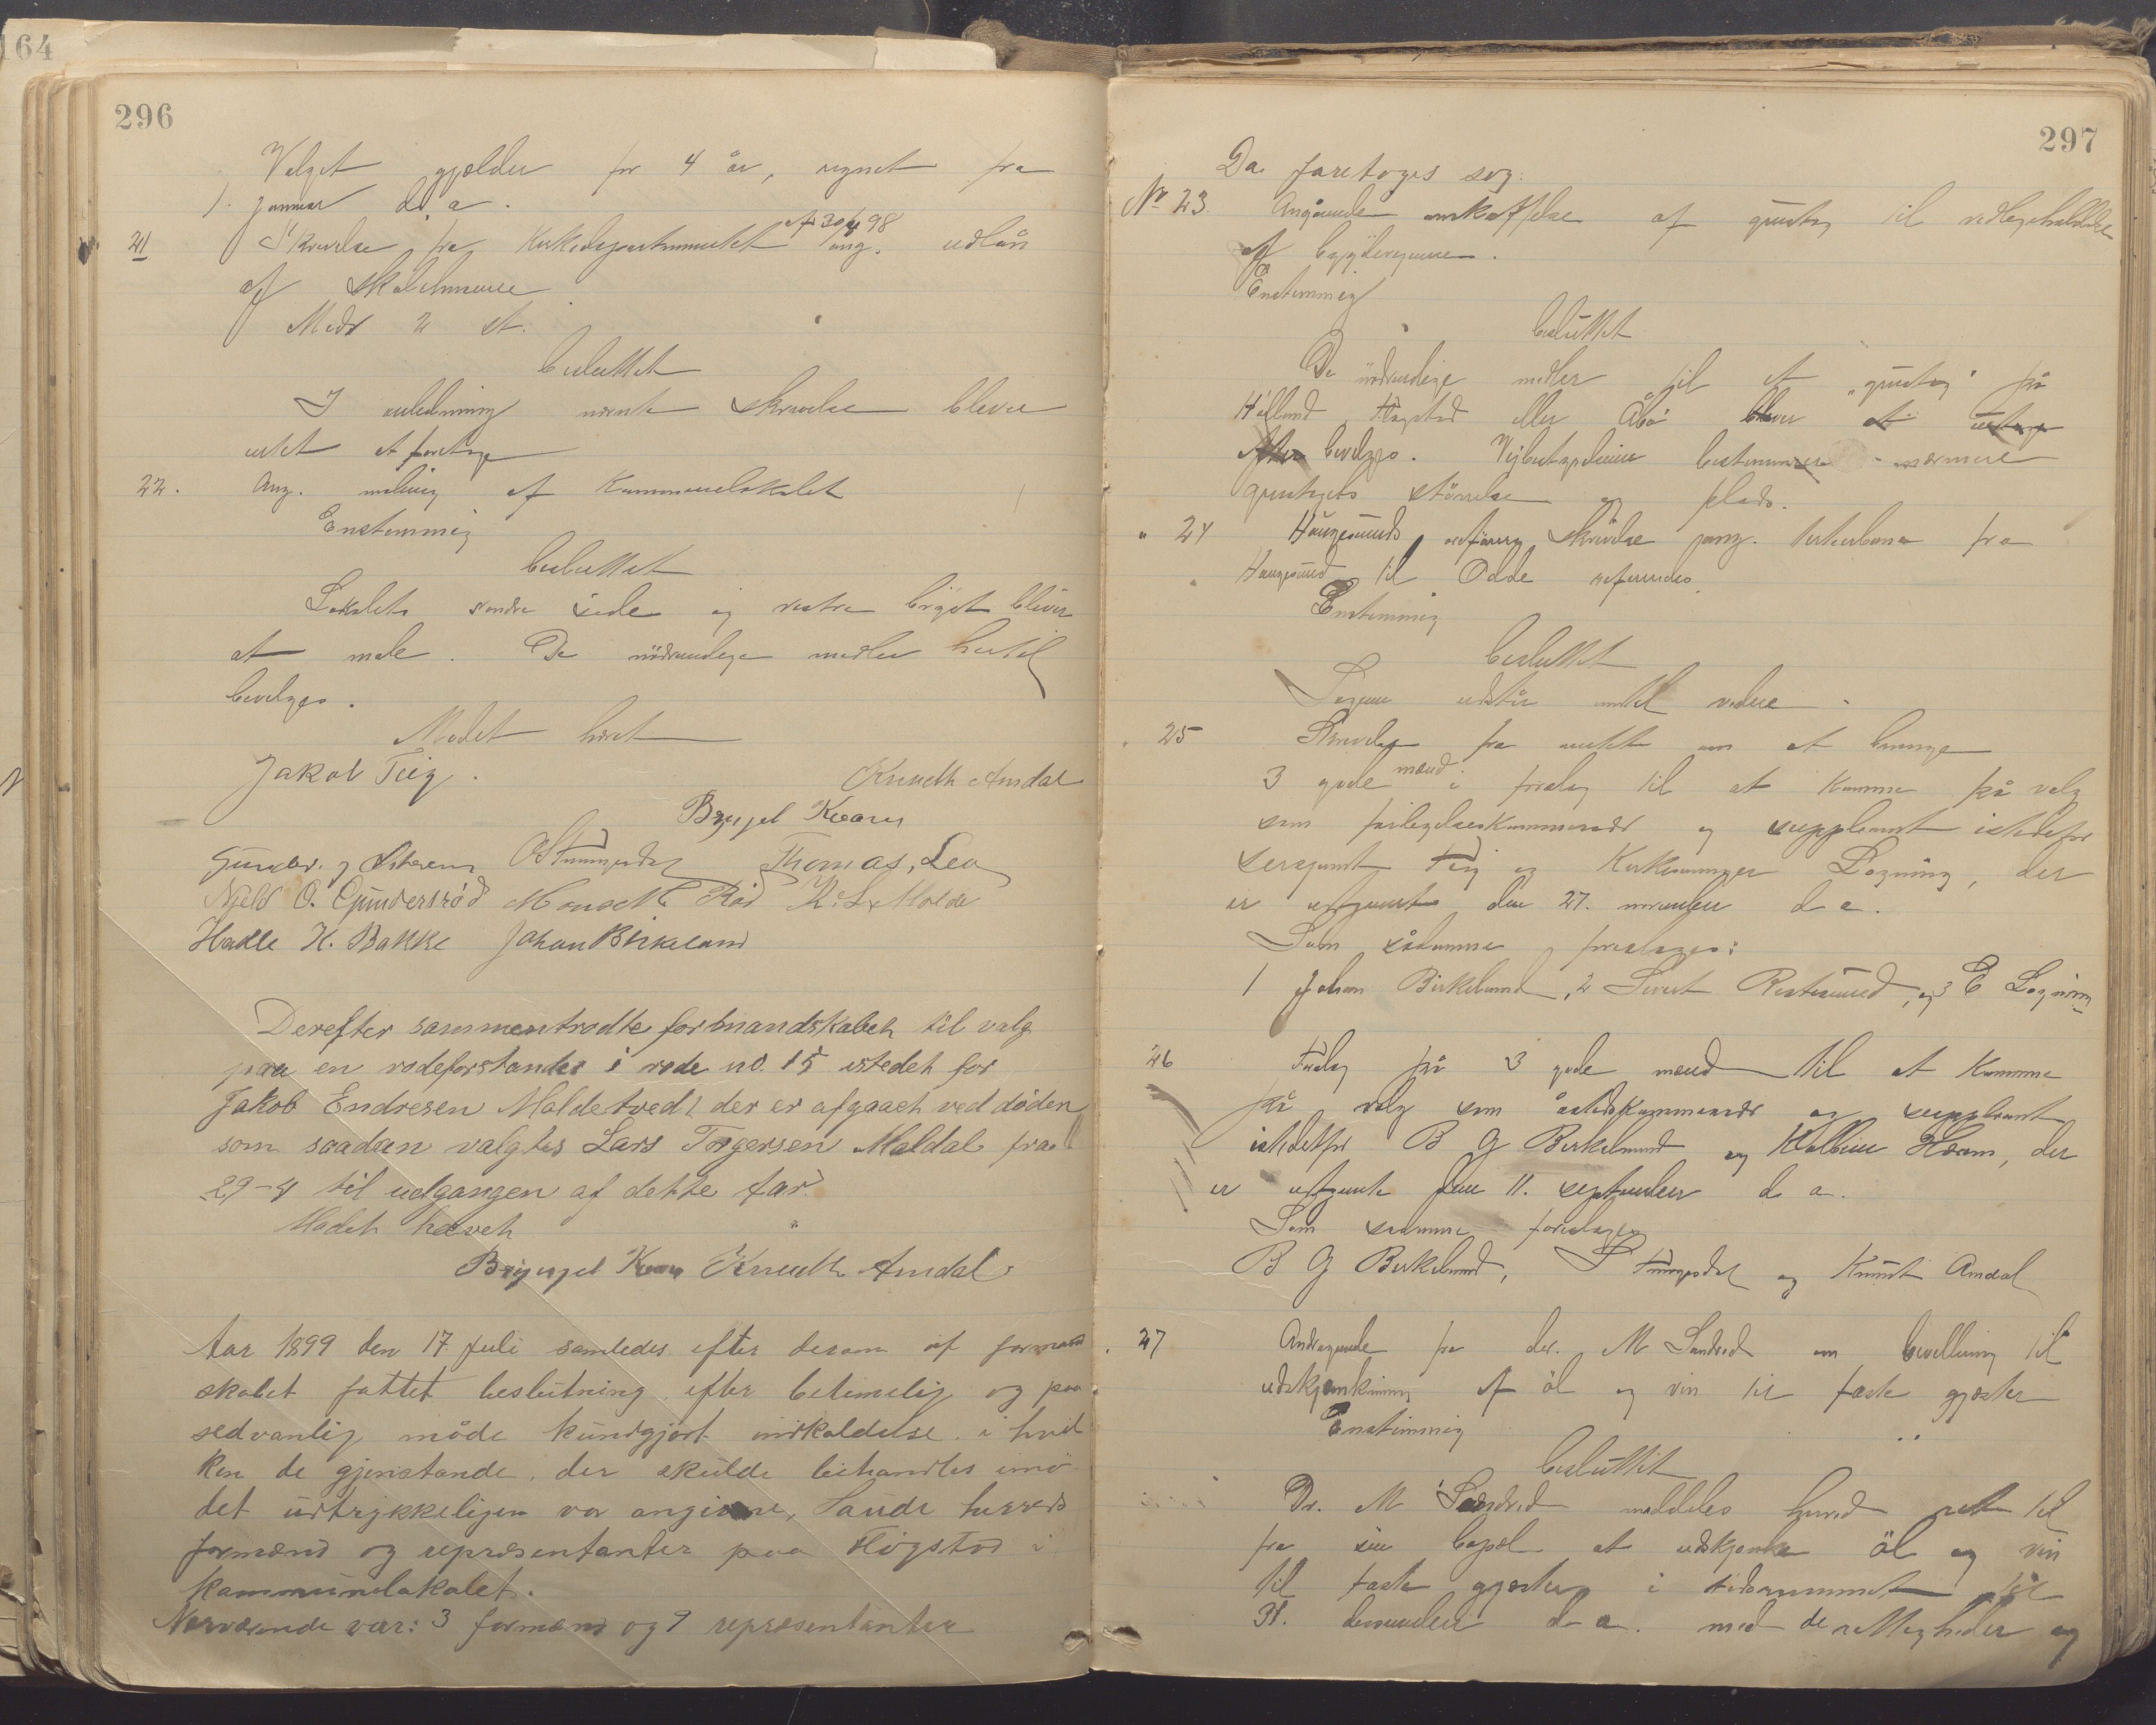 164
296
Valget gjælder for 4 år, regnet fra
1. januar d. a.
21 Skrivelse fra Kirkedepartementet af 30/4 98 ang. udlån
af skolelumene
Medr 2 st.
besluttet
I anledning nævnte skrivelse bliver
intet at foretage
22. Ang. maling af Kommunelokalet
Enstemmig
besluttet
Lokalets søndre side og vestre bisjet bliver
at male. De nødvendige midler hertil
bevilges.
Mødet hævet
Jakob Teig. Knudt Amdal
Bryngel Kvam
Gunder. J Østrem O Tunnesdal Thomas, Lea
Njeld O. Gundersrød Mons Rød K. L. Molde
Hadle H. Bakke Johan Birkeland
Derefter sammentrædte formandskabet til valg
paa en rodeforstander i rode no. 15 istedet for
Jakob Endresen Maldetvedt der er afgaaet ved døden
som saadan valgtes Lars Torgersen Maldal fra
29-4 til udgangen af dette aar.
Mødet hævet
Bryngel Kvam Knudt Amdal
Aar 1899 den 17 Juli samledes efter derom af formand
skabet fattet beslutning efter betimelig og paa
sedvanlig måde kundgjort indkaldelse i hvil
ken de gjenstande, der skulde behandles i mø
det udtrykkeligen var angivne, Saude herreds
formænd og repræsentanter paa Fløgstad i
kommunelokalet.
Nærværende var: 3 formænd og 9 repræsentanter
297
Da foretoges sag:
No 23. Angående anskaffelse af grustag til vedligeholdelse
af bygdevejene.
Enstemmig
besluttet
De nødvendige midler til et "grustag" på
Hølland, Fløgstad eller Åbø bliver at
bevilges. Vejbestyrelsene bestemmer nærmere
grustagets størrelse og plads.
" 24 Haugesunds ordførers skrivelse ang. Kirkerbane fra
Haugesund til Odde refereredes.
Enstemmig
besluttet
Sagen udstår indtil videre.
" 25 Skrivelse fra amtet om at bringe
3 gode mænd i forslag til at komme på valg
som forligelseskommissær og suppleant istedetfor
sersjant Teig og Kirkesanger Løgning, der
er udgjente den 27. november d a.
Som sådanne foreslåes:
1 Johan Birkeland, 2 Sivert Risteund, og 3 E Løgning
26 Forslag på 3 gode mænd til at komme
på valg som åstedskommissær og suppleant
istedetfor B G Birkeland og Kolbein Hvam, der
er udtjente den 11. september d a.
Som sådanne foreslages
B G Birkeland, Tunnesdal og Knudt Amdal
" 27 Andragende fra dr. M Sandved om bevilling til
udskjænkning af øl og vin til faste gjæster
Enstemmig
besluttit
Dr. M Sandved meddeles herved ret til
fra sin bopæl at udskjænke øl og vin
til faste gjæster i tidsrummet til
31. december d a. med de rettigheder og